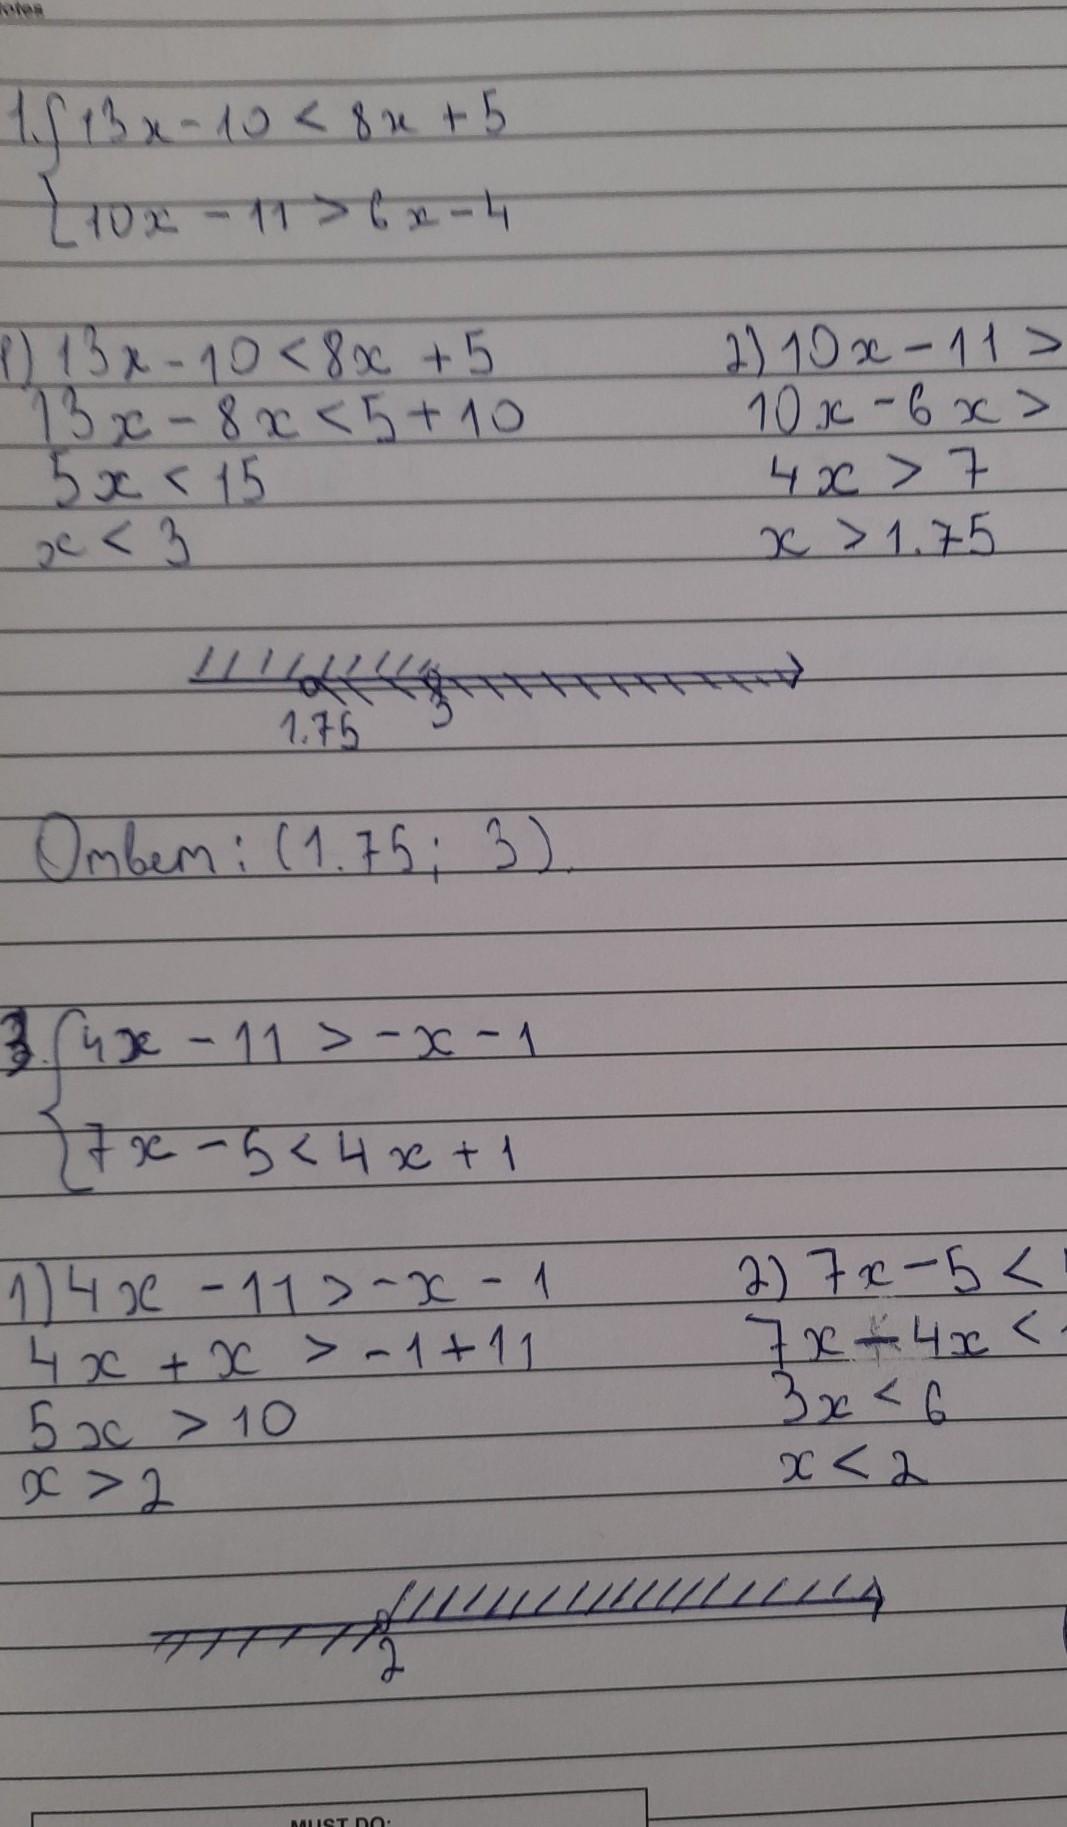 1. { 13x - 10 < 8x + 5
10x - 11 > 6x - 4
1) 13x - 10 < 8x + 5
13x - 8x < 5 + 10
5x < 15
x < 3
2) 10x - 11 >
10x - 6x >
4x > 7
x > 1.75
1.75 3
Ответ: (1.75; 3).
3. { 4x - 11 > -x - 1
7x - 5 < 4x + 1
1) 4x - 11 > -x - 1
4x + x > -1 + 11
5x > 10
x > 2
2) 7x - 5 <
7x - 4x <
3x < 6
x < 2
2
MUST DO: